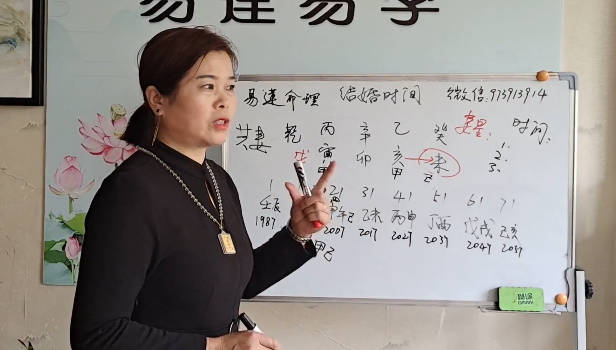 易速易学
易速命理 结婚时间 微信:913913914
夫妻 乾 丙 辛 乙 癸 妻星: 时间:
寅 卯 亥 未 1.
甲 甲 己 2.
3.
1 21 31 41 51 61 71
壬辰 乙未 丙申 丁酉 戊戌 己亥
1987 2007 2017 2027 2037 2047 2057
甲己